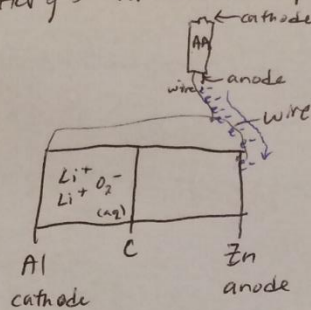 cathode
AA
anode
wire
wire
Li⁺
Li⁺ O₂⁻
(aq)
Al
C
Zn
cathode
anode